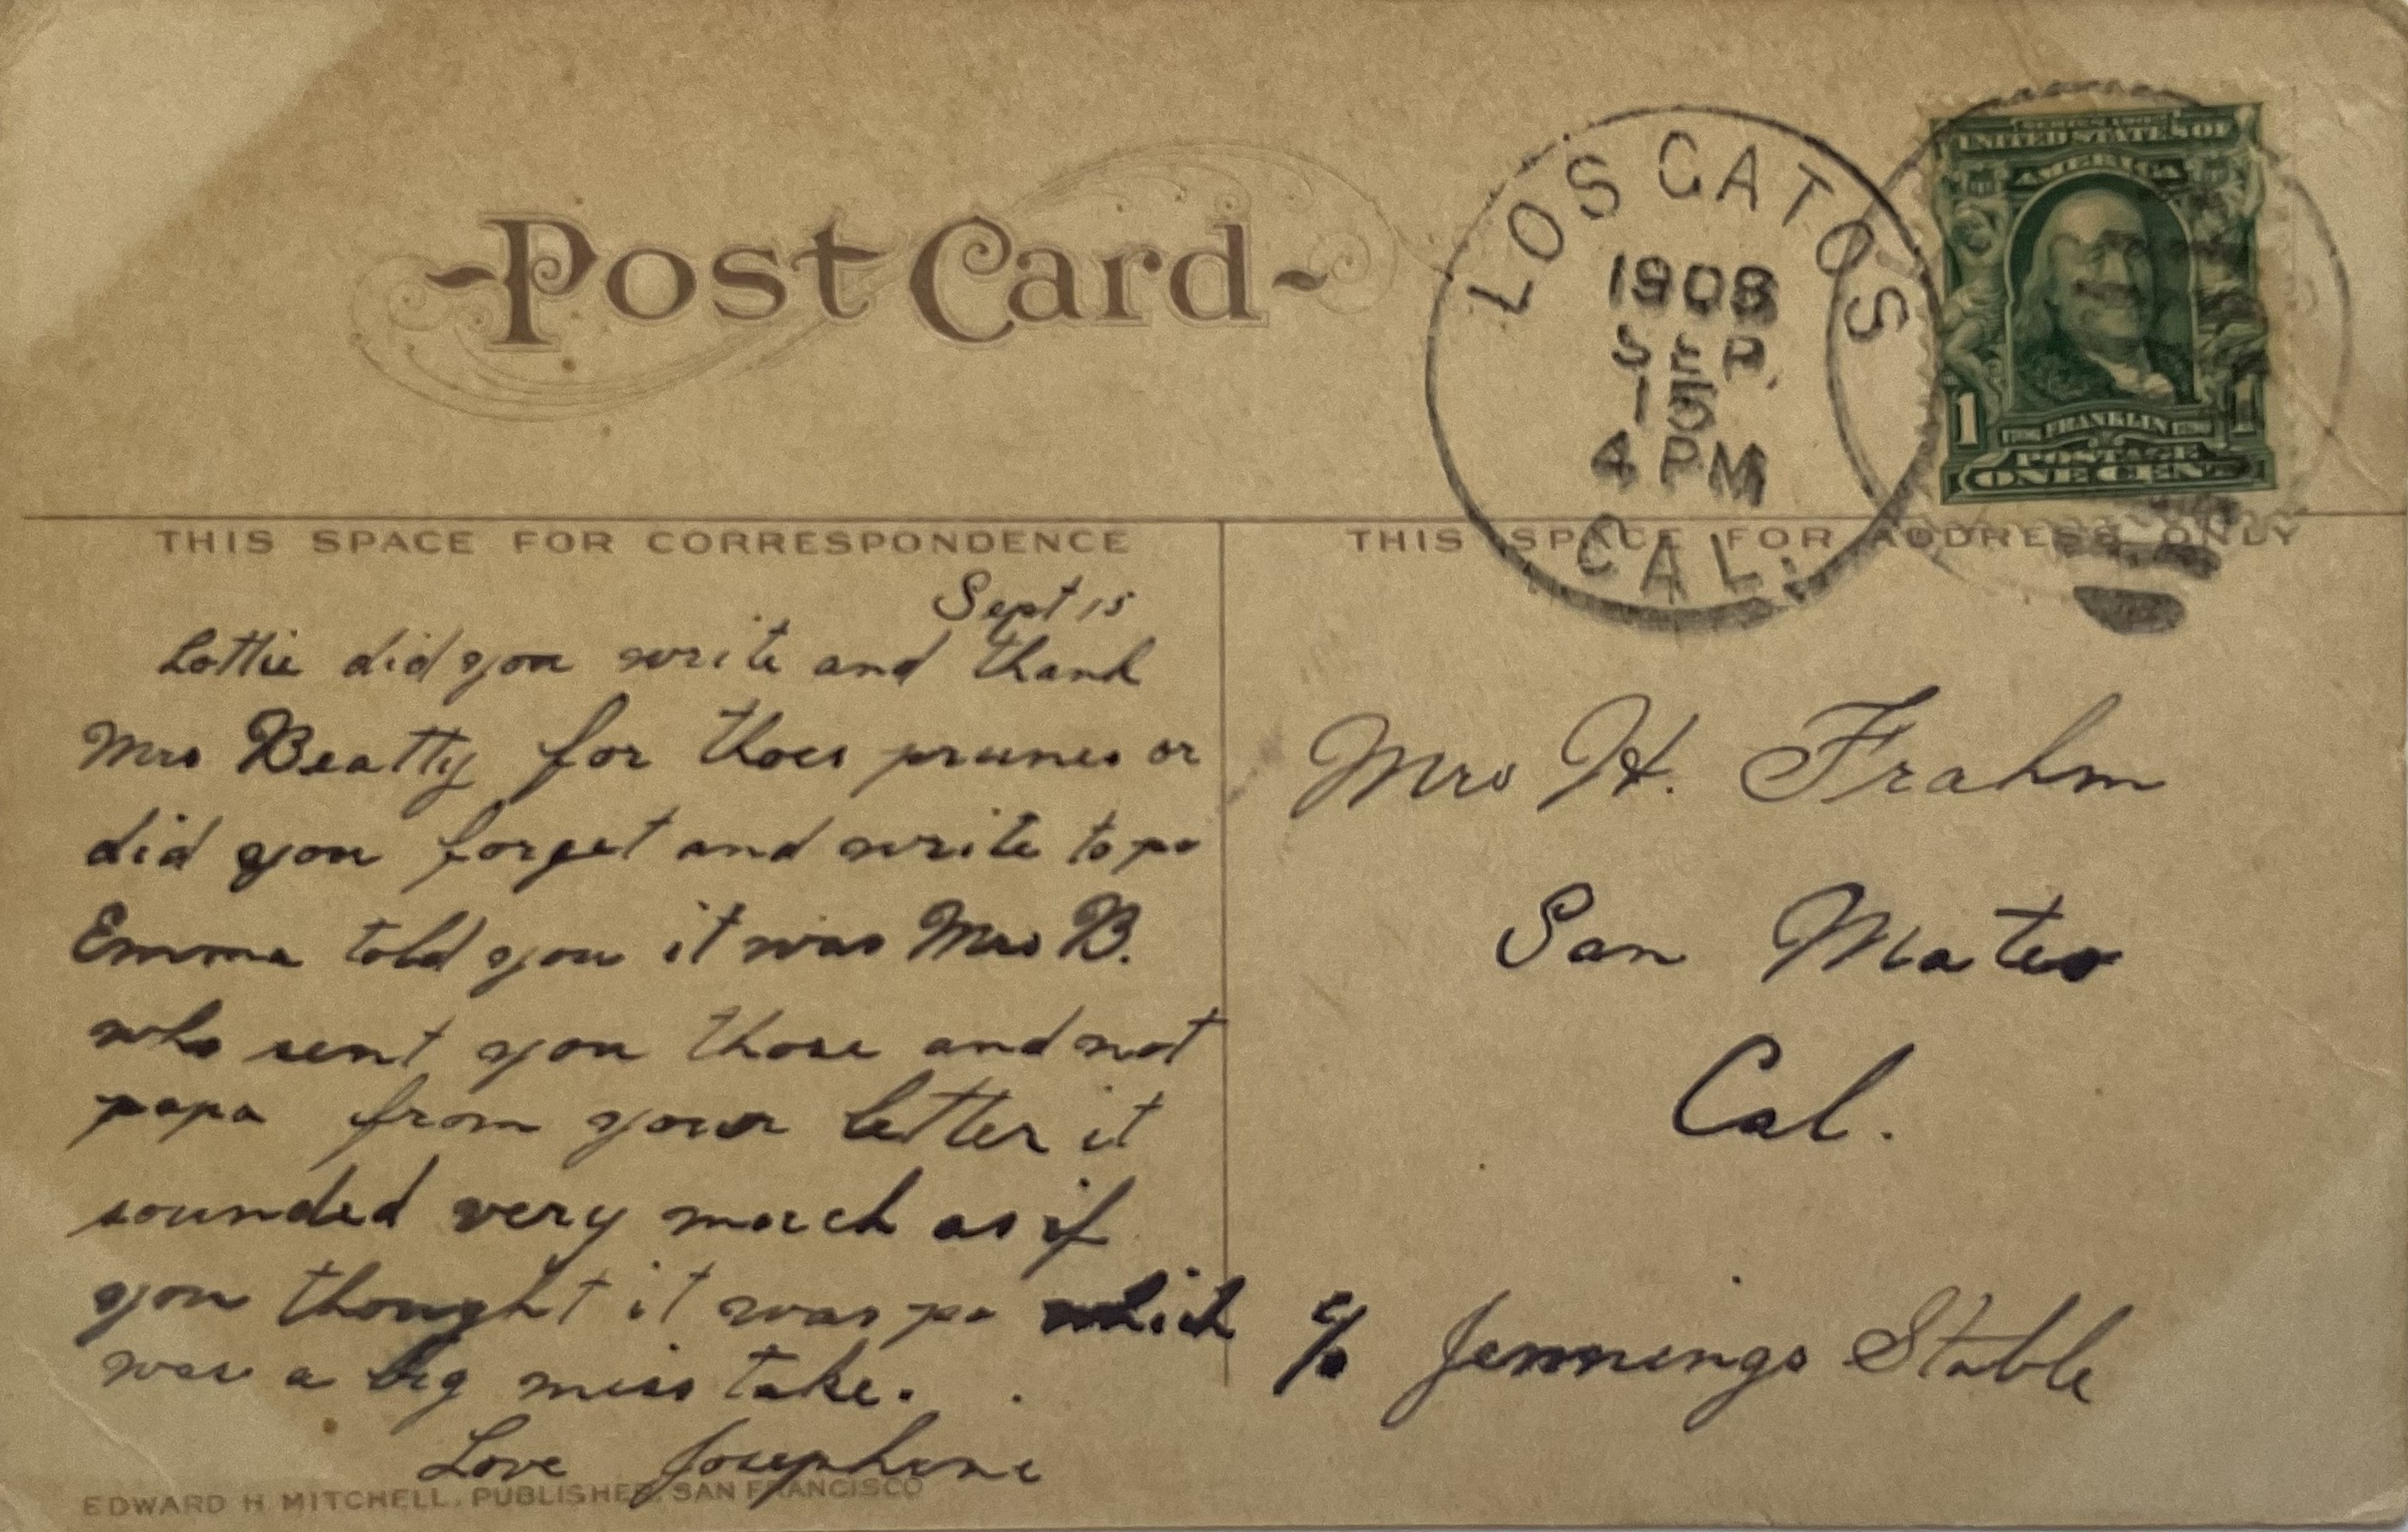 Post Card
LOS GATOS
1908
SEP
15
4 PM
CAL.
SERIES 1902
UNITED STATES OF
AMERICA
1 FRANKLIN 1
POSTAGE
ONE CENT
THIS SPACE FOR CORRESPONDENCE
Sept 15
Lottie did you write and thank
Mrs Beatty for thoes prunes or
did you forget and write to pa
Emma told you it was Mrs B.
who sent you those and not
papa from your letter it
sounded very much as if
you thought it was pa which
was a big miss take.
Love Josephine
EDWARD H MITCHELL, PUBLISHER, SAN FRANCISCO
THIS SPACE FOR ADDRESS ONLY
Mrs H. Frahm
San Mateo
Cal.
c/o Jennings Stable